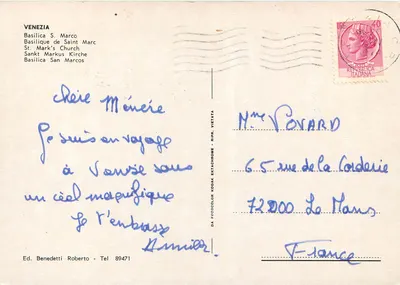 VENEZIA
Basilica S. Marco
Basilique de Saint Marc
St. Mark's Church
Sankt Markus Kirche
Basilica San Marcos
chère
Je suis en voyage
à Venise sous
un ciel magnifique
Je t'embrasse
Mme POVARD
65 rue de la Corderie
72000 Le Mans
France
Ed. Benedetti Roberto - Tel 89471